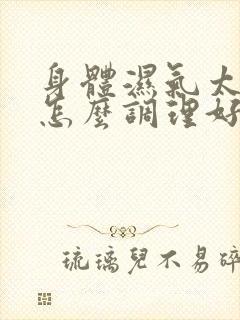 身體濕氣大
怎麼調理好
琉璃兒不易碎